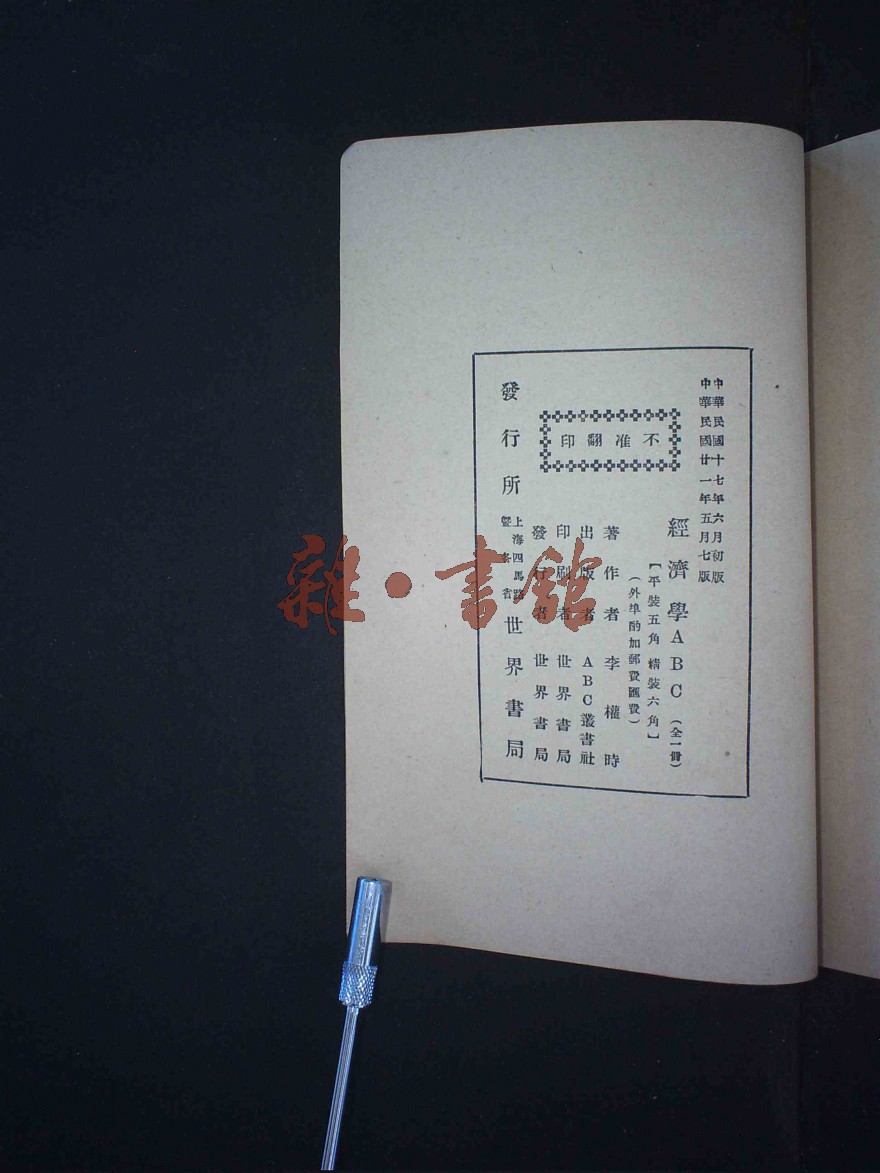 中華民國十七年六月初版
中華民國廿一年五月七版
經濟學ABC（全一冊）
【平裝五角 精裝六角】
（外埠酌加郵費匯費）
不准翻印
著作者 李權時
出版者 ABC叢書社
印刷者 世界書局
發行者 世界書局
發行所 上海四馬路暨各省 世界書局
雜·書館